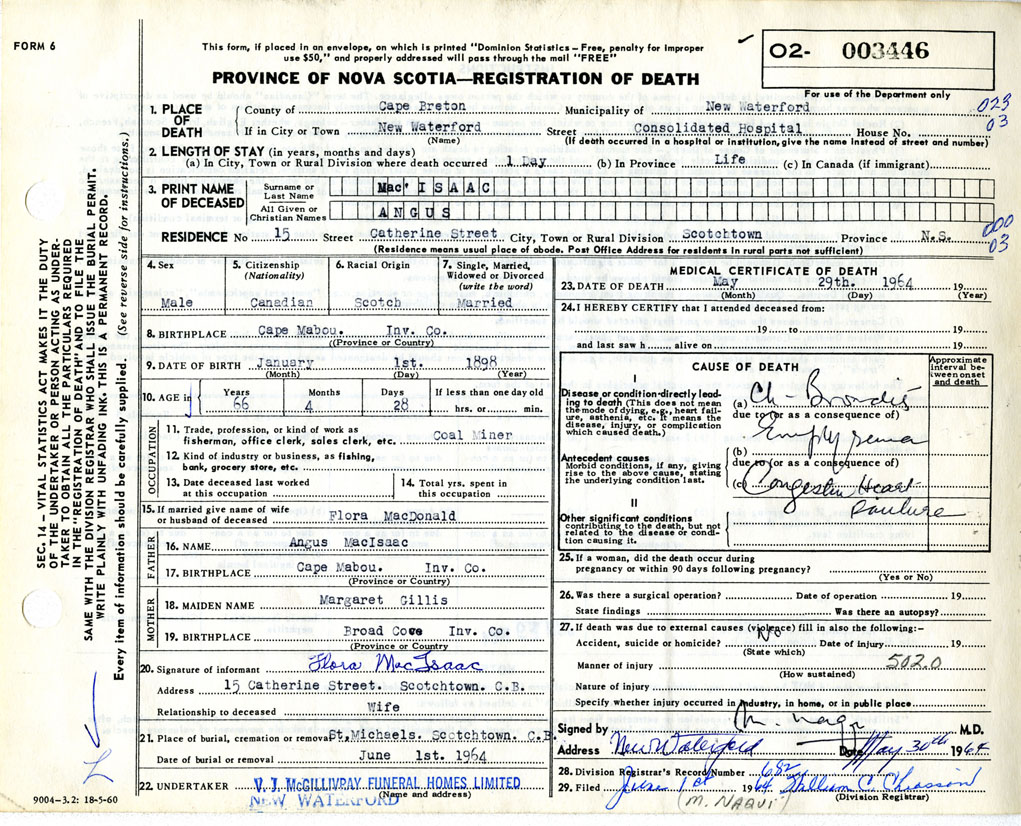 FORM 6
This form, if placed in an envelope, on which is printed "Dominion Statistics – Free, penalty for improper
use $50," and properly addressed will pass through the mail "FREE"
PROVINCE OF NOVA SCOTIA—REGISTRATION OF DEATH
02- 003446
For use of the Department only
023
03
1. PLACE OF DEATH
County of Cape Breton Municipality of New Waterford
If in City or Town New Waterford Street Consolidated Hospital House No.
(Name) (If death occurred in a hospital or institution, give the name instead of street and number)
2. LENGTH OF STAY (in years, months and days)
(a) In City, Town or Rural Division where death occurred 1 Day (b) In Province Life (c) In Canada (if immigrant)
3. PRINT NAME OF DECEASED
Surname or Last Name Mac' ISAAC
All Given or Christian Names ANGUS
000
03
RESIDENCE No 15 Street Catherine Street City, Town or Rural Division Scotchtown Province N.S.
(Residence means usual place of abode. Post Office Address for residents in rural parts not sufficient)
4. Sex
Male
5. Citizenship (Nationality)
Canadian
6. Racial Origin
Scotch
7. Single, Married, Widowed or Divorced (write the word)
Married
8. BIRTHPLACE Cape Mabou. Inv. Co.
((Province or Country)
9. DATE OF BIRTH January 1st. 1898
(Month) (Day) (Year)
10. AGE in Years Months Days If less than one day old
66 4 28 hrs. or min.
OCCUPATION
11. Trade, profession, or kind of work as
fisherman, office clerk, sales clerk, etc. Coal Miner
12. Kind of industry or business, as fishing,
bank, grocery store, etc.
13. Date deceased last worked
at this occupation
14. Total yrs. spent in
this occupation
15. If married give name of wife
or husband of deceased Flora MacDonald
FATHER
16. NAME Angus MacIsaac
17. BIRTHPLACE Cape Mabou. Inv. Co.
(Province or Country)
MOTHER
18. MAIDEN NAME Margaret Gillis
19. BIRTHPLACE Broad Cove Inv. Co.
(Province or Country
20. Signature of informant Flora MacIsaac
Address 15 Catherine Street. Scotchtown. C.B.
Relationship to deceased Wife
21. Place of burial, cremation or removal St, Michaels. Scotchtown. C.B.
Date of burial or removal June 1st. 1964
22. UNDERTAKER V. J. McGILLIVRAY FUNERAL HOMES LIMITED
(Name and address)
NEW WATERFORD
9004-3.2: 18-5-60
MEDICAL CERTIFICATE OF DEATH
23. DATE OF DEATH May 29th. 1964 19
(Month) (Day) (Year)
24. I HEREBY CERTIFY that I attended deceased from:
19 to 19
and last saw h alive on 19
CAUSE OF DEATH
Approximate interval between onset and death
I
Disease or condition directly leading to death (This does not mean
the mode of dying, e.g., heart failure, asthenia, etc. It means the
disease, injury, or complication
which caused death.)
(a) Ch-
due to (or as a consequence of)
Emphysema
Antecedent causes
Morbid conditions, if any, giving
rise to the above cause, stating
the underlying condition last.
(b)
due to (or as a consequence of)
(c) Congestive Heart
Failure
II
Other significant conditions
contributing to the death, but not
related to the disease or condition
causing it.
25. If a woman, did the death occur during
pregnancy or within 90 days following pregnancy?
(Yes or No)
26. Was there a surgical operation? Date of operation 19
State findings Was there an autopsy?
27. If death was due to external causes (violence) fill in also the following:-
Accident, suicide or homicide? No Date of injury 19
(State which)
Manner of injury 502.0
(How sustained)
Nature of injury
Specify whether injury occurred in industry, in home, or in public place
Signed by M. Naqui M.D.
Address New Waterford Date May 30th 1964
28. Division Registrar's Record Number 682
29. Filed June 1st 1964 William C. Chiasson
(M. NAQUI) (Division Registrar)
SEC. 14 – VITAL STATISTICS ACT MAKES IT THE DUTY
OF THE UNDERTAKER OR PERSON ACTING AS UNDER-
TAKER TO OBTAIN ALL THE PARTICULARS REQUIRED
IN THE "REGISTRATION OF DEATH" AND TO FILE THE
SAME WITH THE DIVISION REGISTRAR WHO SHALL ISSUE THE BURIAL PERMIT.
WRITE PLAINLY WITH UNFADING INK. THIS IS A PERMANENT RECORD.
Every item of information should be carefully supplied. (See reverse side for instructions.)